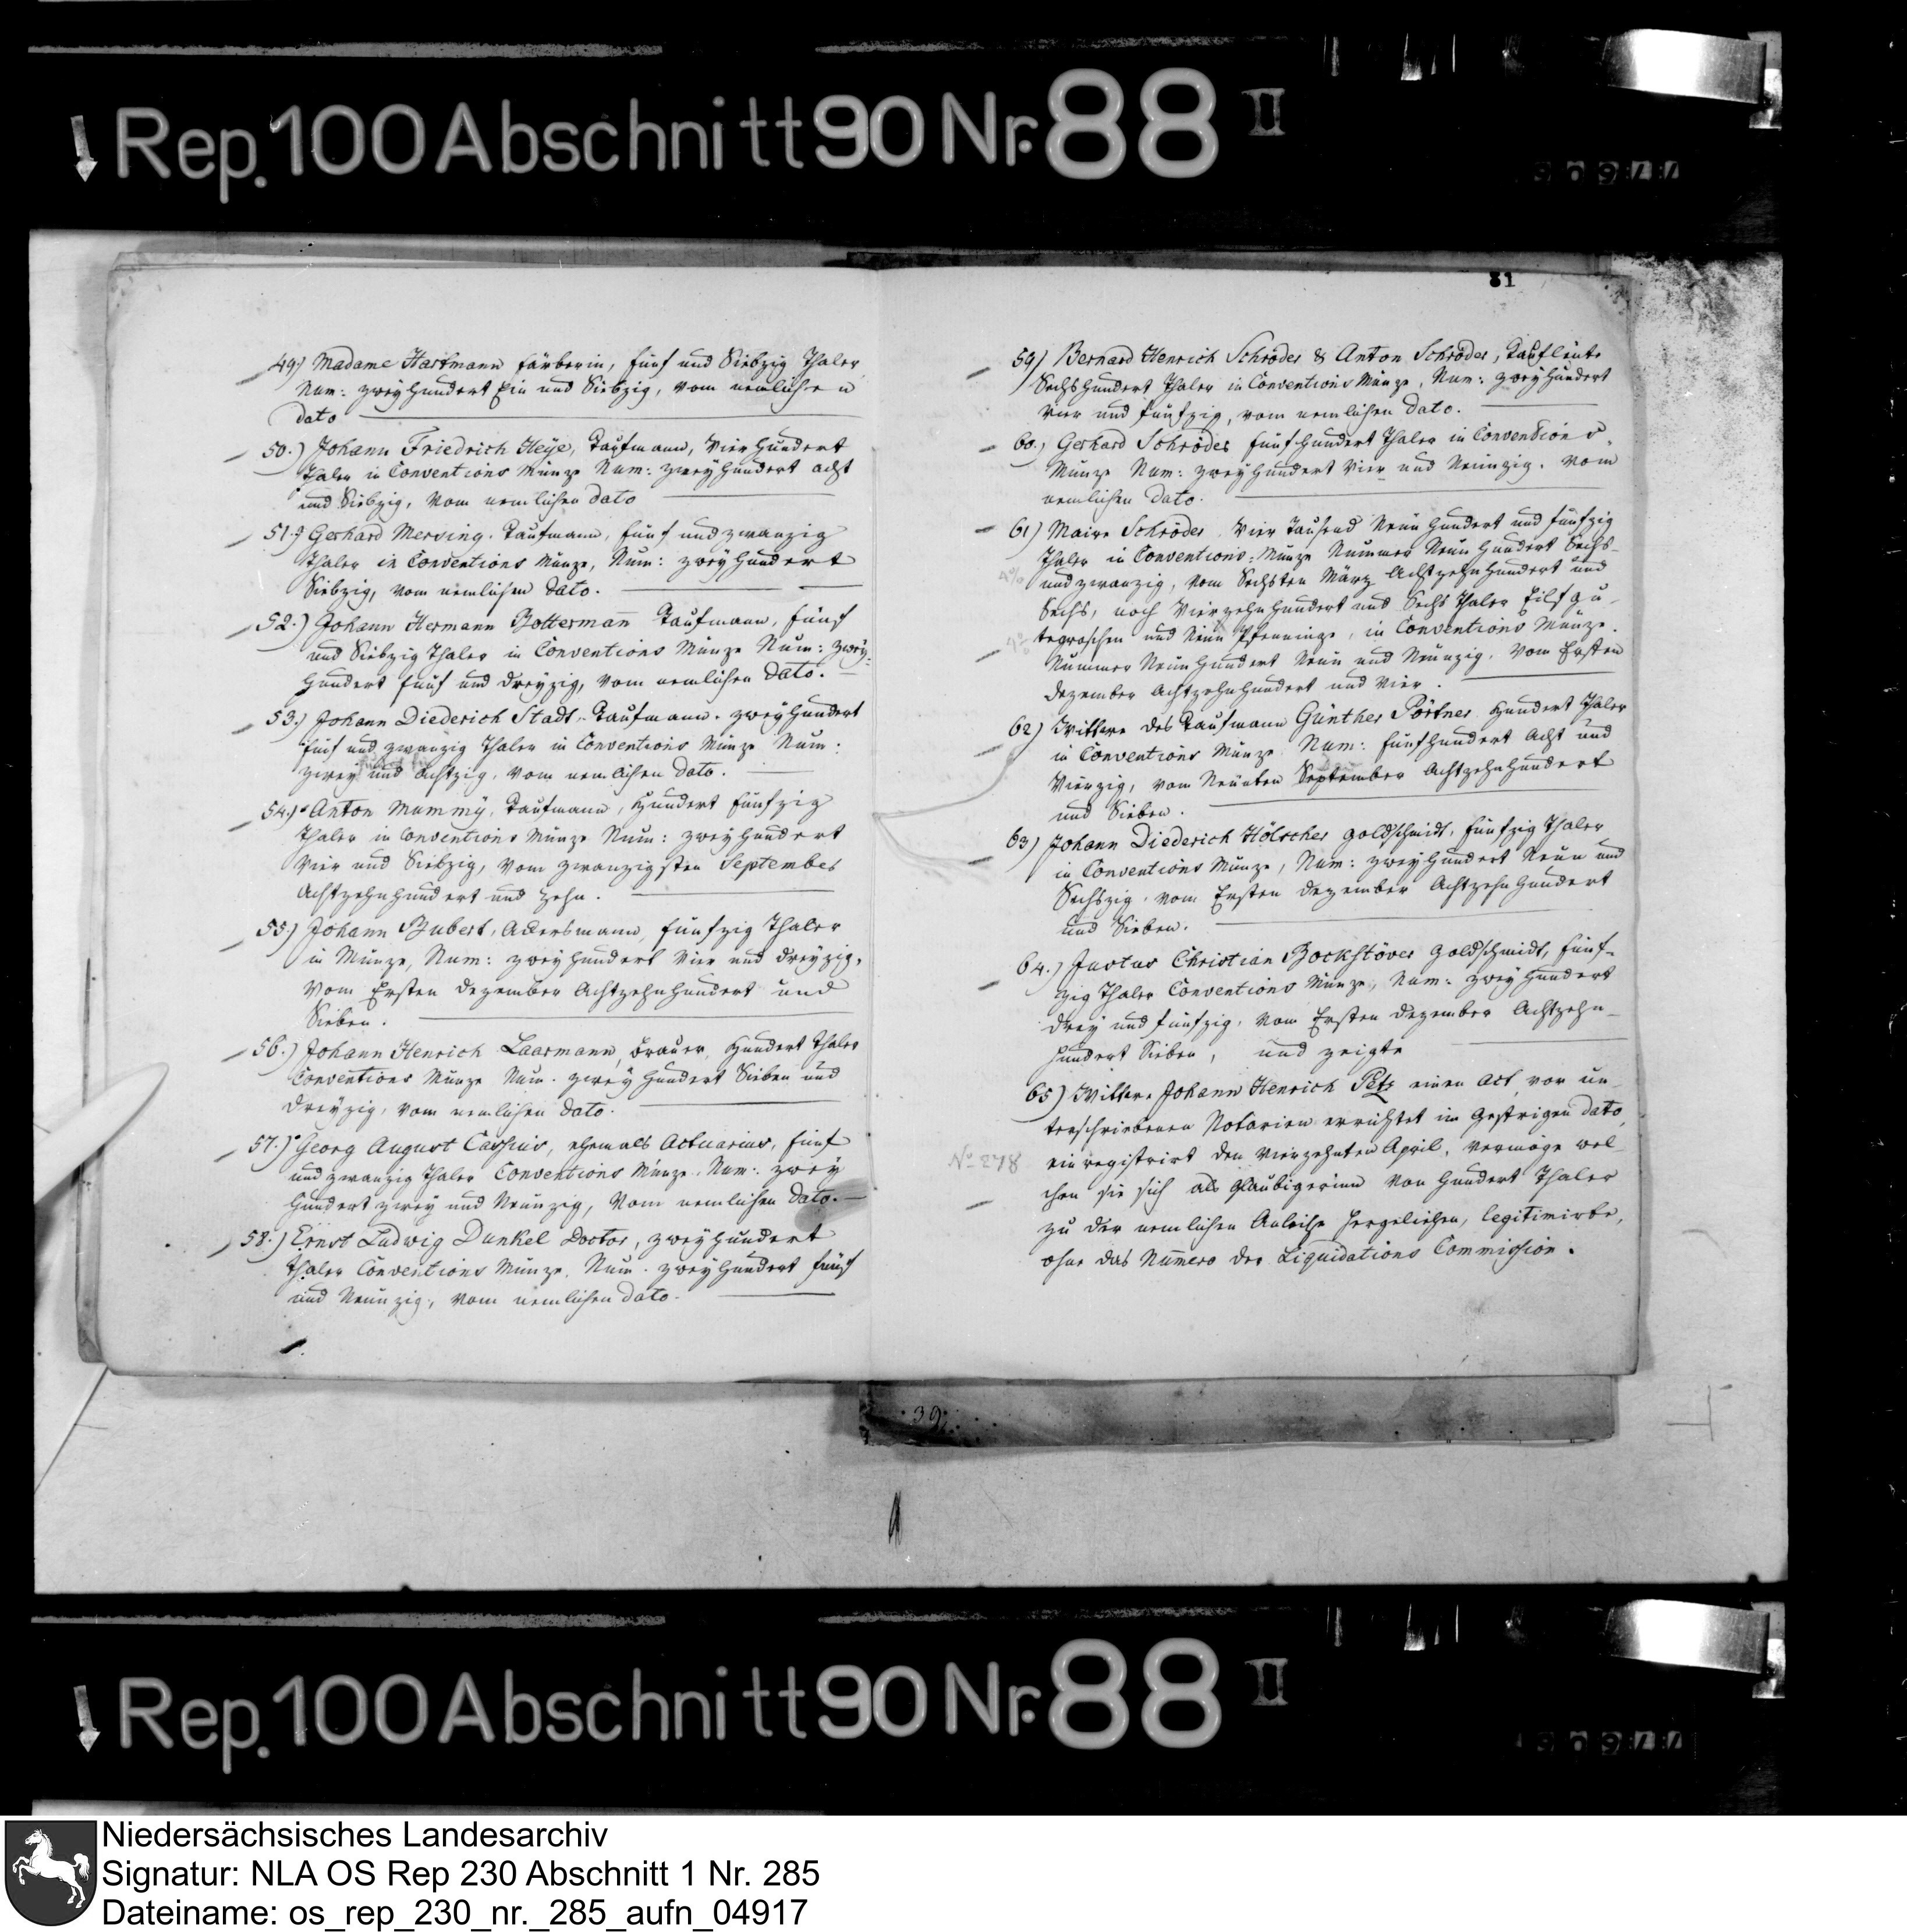 Rep. 100 Abschnitt 90 Nr. 88 II
81
49.) Madame Hartmann Färberin, fünf und Siebzig Thaler
Num: zweyhundert Ein und Siebzig, vom nemlichen
dato
50.) Johann Friedrich Heÿe, Kaufmann, Vierhundert
Thaler in Conventions Münze Num: zweyhundert acht
und Siebzig, vom nemlichen dato
51.) Gerhard Mersing. Kaufmann, fünf und zwanzig
Thaler in Conventions Münze, Num: zweyhundert
Siebzig, vom nemlichen dato.
52.) Johann Hermann Botterman̅ Kaufmann, fünf
und Siebzig Thaler in Conventions Münze Num: zwey-
hundert fünf und dreyzig, vom nemlichen dato.
53.) Johann Diederich Stadt. Kaufmann. zweyhundert
fünf und zwanzig Thaler in Conventions Münze Num:
zwey und Achtzig, vom nemlichen dato.
54.) Anton Mummÿ, Kaufmann, Hundert fünfzig
Thaler in Conventions Münze Num: zweyhundert
vier und Siebzig, vom zwanzigsten September
Achtzehnhundert und zehn.
55.) Johann Bubert, Ackersmann, fünfzig Thaler
in Münze, Num: zweyhundert vier und dreyzig,
vom Ersten Dezember Achtzehnhundert und
Sieben.
56.) Johann Henrich Laarmann, Brauer, Hundert Thaler
Conventions Münze Num. zweyhundert Sieben und
dreyzig, vom nemlichen dato.
57.) Georg August Cassius, ehemals Actuarius, fünf
und zwanzig Thaler Conventions Münze. Num: zwey
hundert zwey und Neunzig, vom nemlichen dato.
58.) Ernst Ludwig Dunkel Doctor, zweyhundert
Thaler Conventions Münze. Num. zweyhundert fünf
und Neunzig, vom nemlichen dato.
59) Bernard Henrich Schröder & Anton Schröder, Kaufleute
Sechshundert Thaler in Conventions Münze, Num: zweyhundert
vier und fünfzig, vom nemlichen dato.
60.) Gerhard Schröder fünfhundert Thaler in Conventions
Münze Num: zweyhundert Vier und Neunzig. vom
nemlichen dato.
61) Maire Schröder Vier Tausend Neunhundert und fünfzig
Thaler in Conventions-Münze Nummer Neunhundert Sechs-
und zwanzig, vom Sechsten März Achtzehnhundert und
Sechs, noch Vierzehnhundert und Sechs Thaler Eilf gu-
tegroschen und Neun Pfenninge, in Conventions Münze.
Nummer Neunhundert Neun und Neunzig, vom Ersten
Dezember Achtzehnhundert und Vier.
62) Wittwe des Kaufmann Günther Pörtner Hundert Thaler
in Conventions Münze Num: fünfhundert Acht und
Vierzig, vom Neunten September Achtzehnhundert
und Sieben.
63) Johann Diederich Hölscher Goldschmidt, fünfzig Thaler
in Conventions Münze, Num: zweyhundert Neun und
Sechszig, vom Ersten Dezember Achtzehnhundert
und Sieben.
64.) Justus Christian Bockstöver Goldschmidt, fünf-
zig Thaler Conventions Münze, Num: zweyhundert
drey und fünfzig, vom Ersten Dezember Achtzehn-
hundert Sieben, und zeigte
65) Wittwe Johann Henrich Petz einen Act vor un-
terschriebenen Notarien errichtet im Gestrigen dato,
No 278
einregistrirt den vierzehnten April, vermöge wel-
chen sie sich als Gläubigerinn von Hundert Thaler
zu der nemlichen Anleihe hergeliehen, legitimirte,
ohne das Numero der Liquidations Commission.
39
Rep. 100 Abschnitt 90 Nr. 88 II
Niedersächsisches Landesarchiv
Signatur: NLA OS Rep 230 Abschnitt 1 Nr. 285
Dateiname: os_rep_230_nr._285_aufn_04917